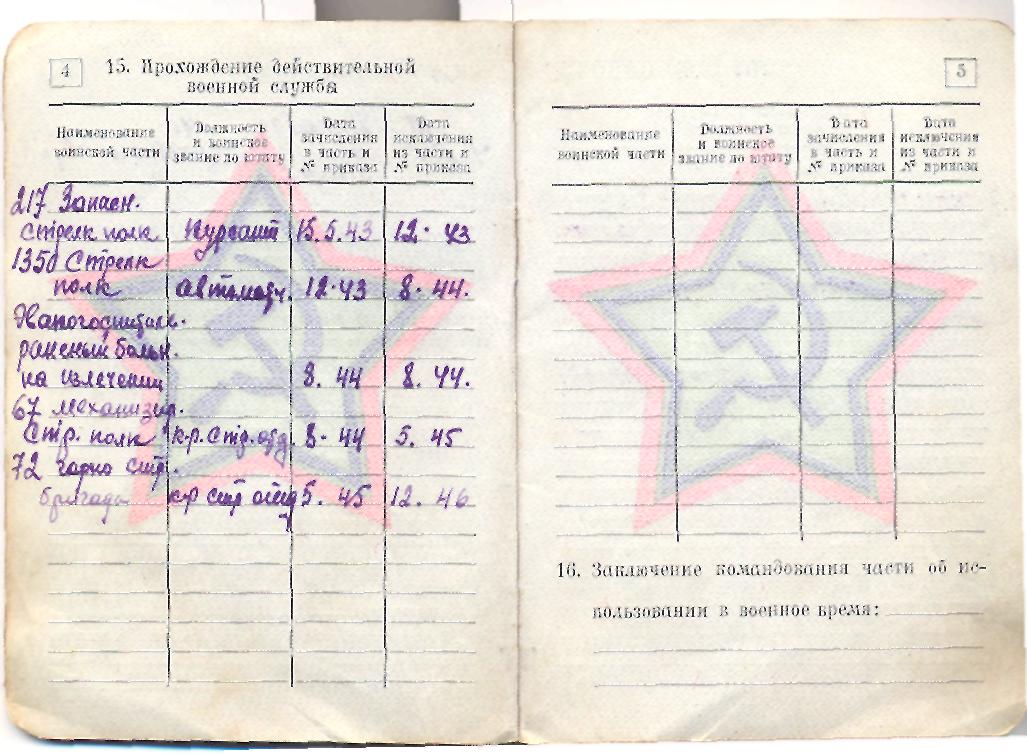 4
15. Прохождение действительной
военной службы
Наименование
воинской части
Должность
и воинское
звание по штату
Дата
зачисления
в часть и
№ приказа
Дата
исключения
из части и
№ приказа
217 Запасн.
стрелк полк Курсант 15.5.43 12. 43
1350 Стрелк
полк автоматч. 12.43 8. 44.
раненый больн.
на излечении 8. 44 8. 44.
67 механизир.
Стр. полк к-р. стр. отд. 8. 44 5. 45
72 горно стр.
бригада к-р стр отд 5. 45 12. 46
5
Наименование
воинской части
Должность
и воинское
звание по штату
Дата
зачисления
в часть и
№ приказа
Дата
исключения
из части и
№ приказа
16. Заключение командования части об ис-
пользовании в военное время: